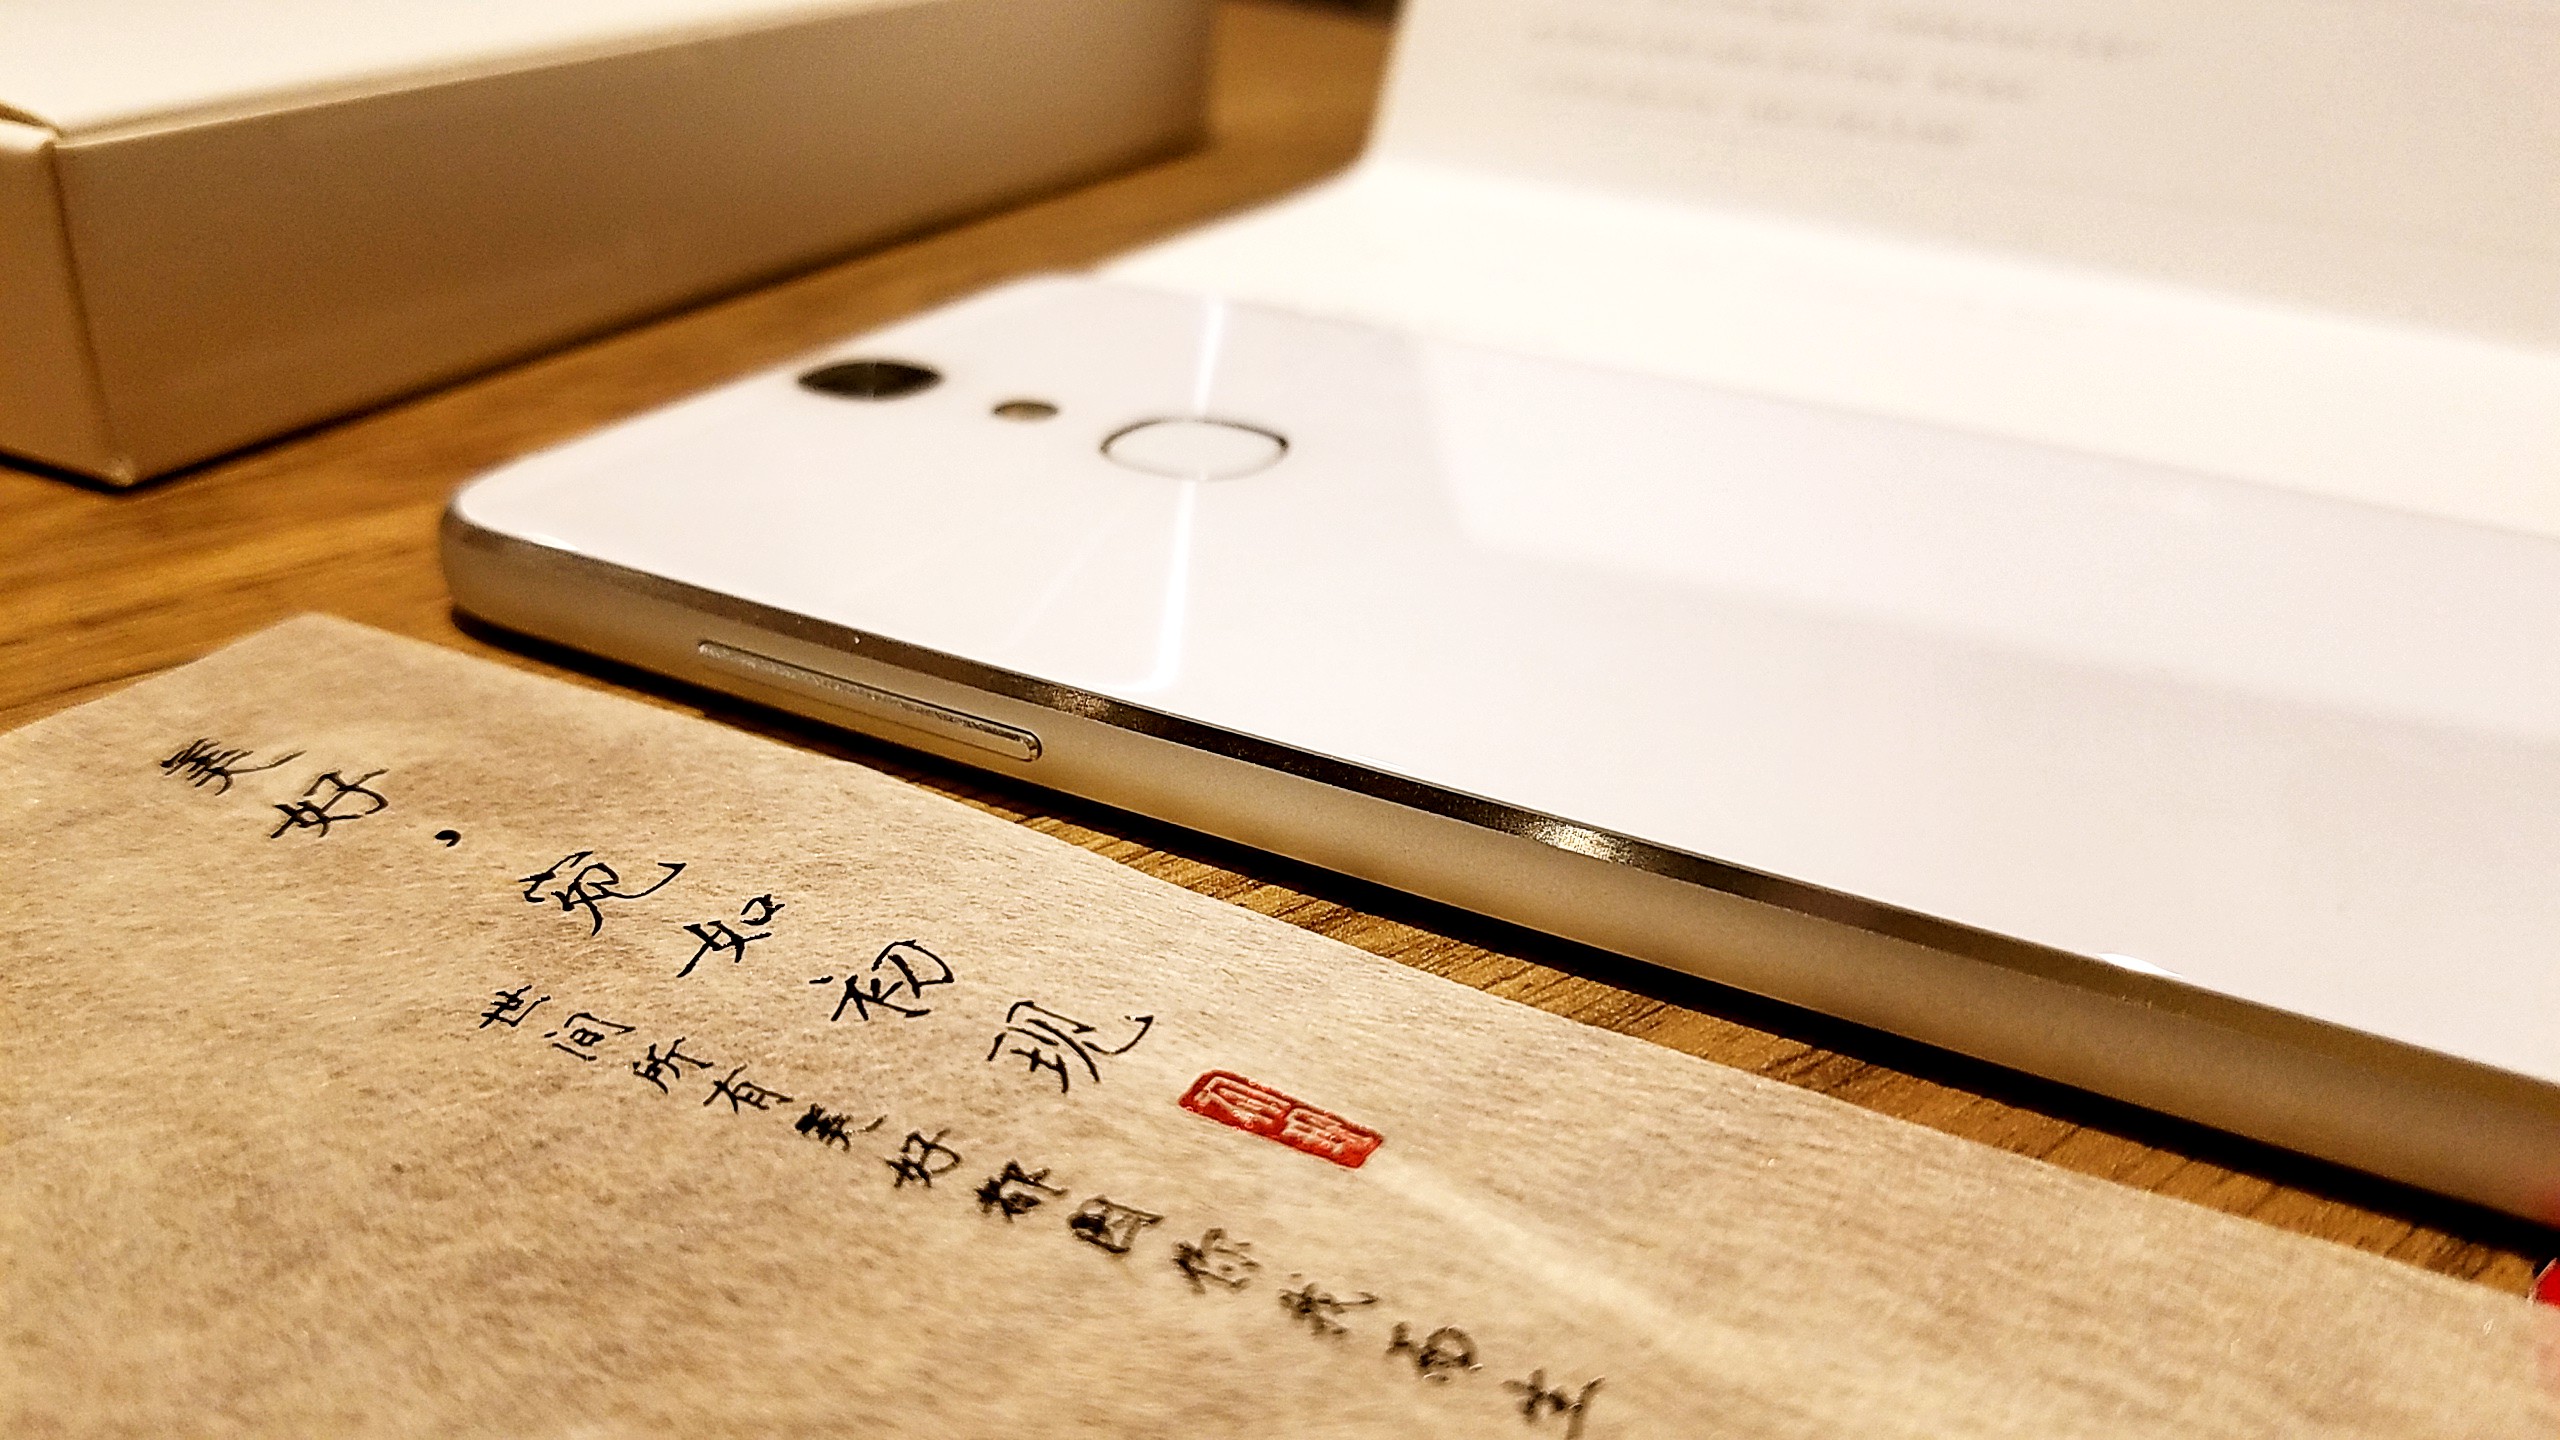 美好，宛如初现
世间所有美好都因你我而生